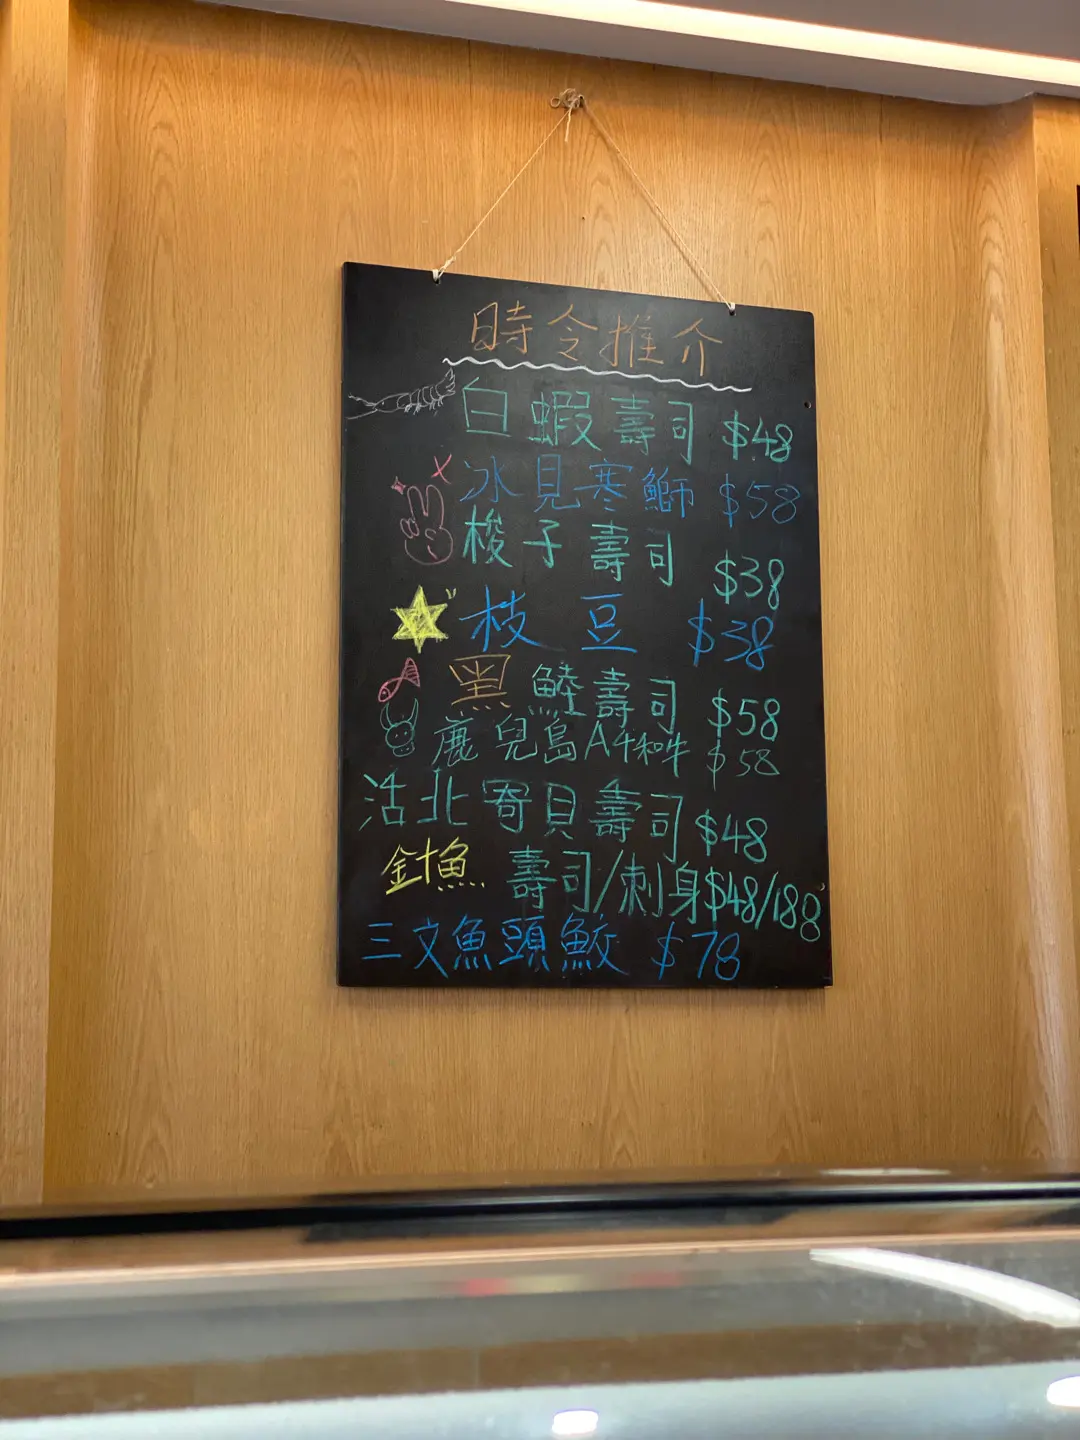 時令推介
白蝦壽司 $48
氷見寒鰤 $58
梭子壽司 $38
枝豆 $38
黑鯥壽司 $58
鹿兒島A4和牛 $58
活北寄貝壽司 $48
針魚壽司/刺身 $48/188
三文魚頭鮫 $78